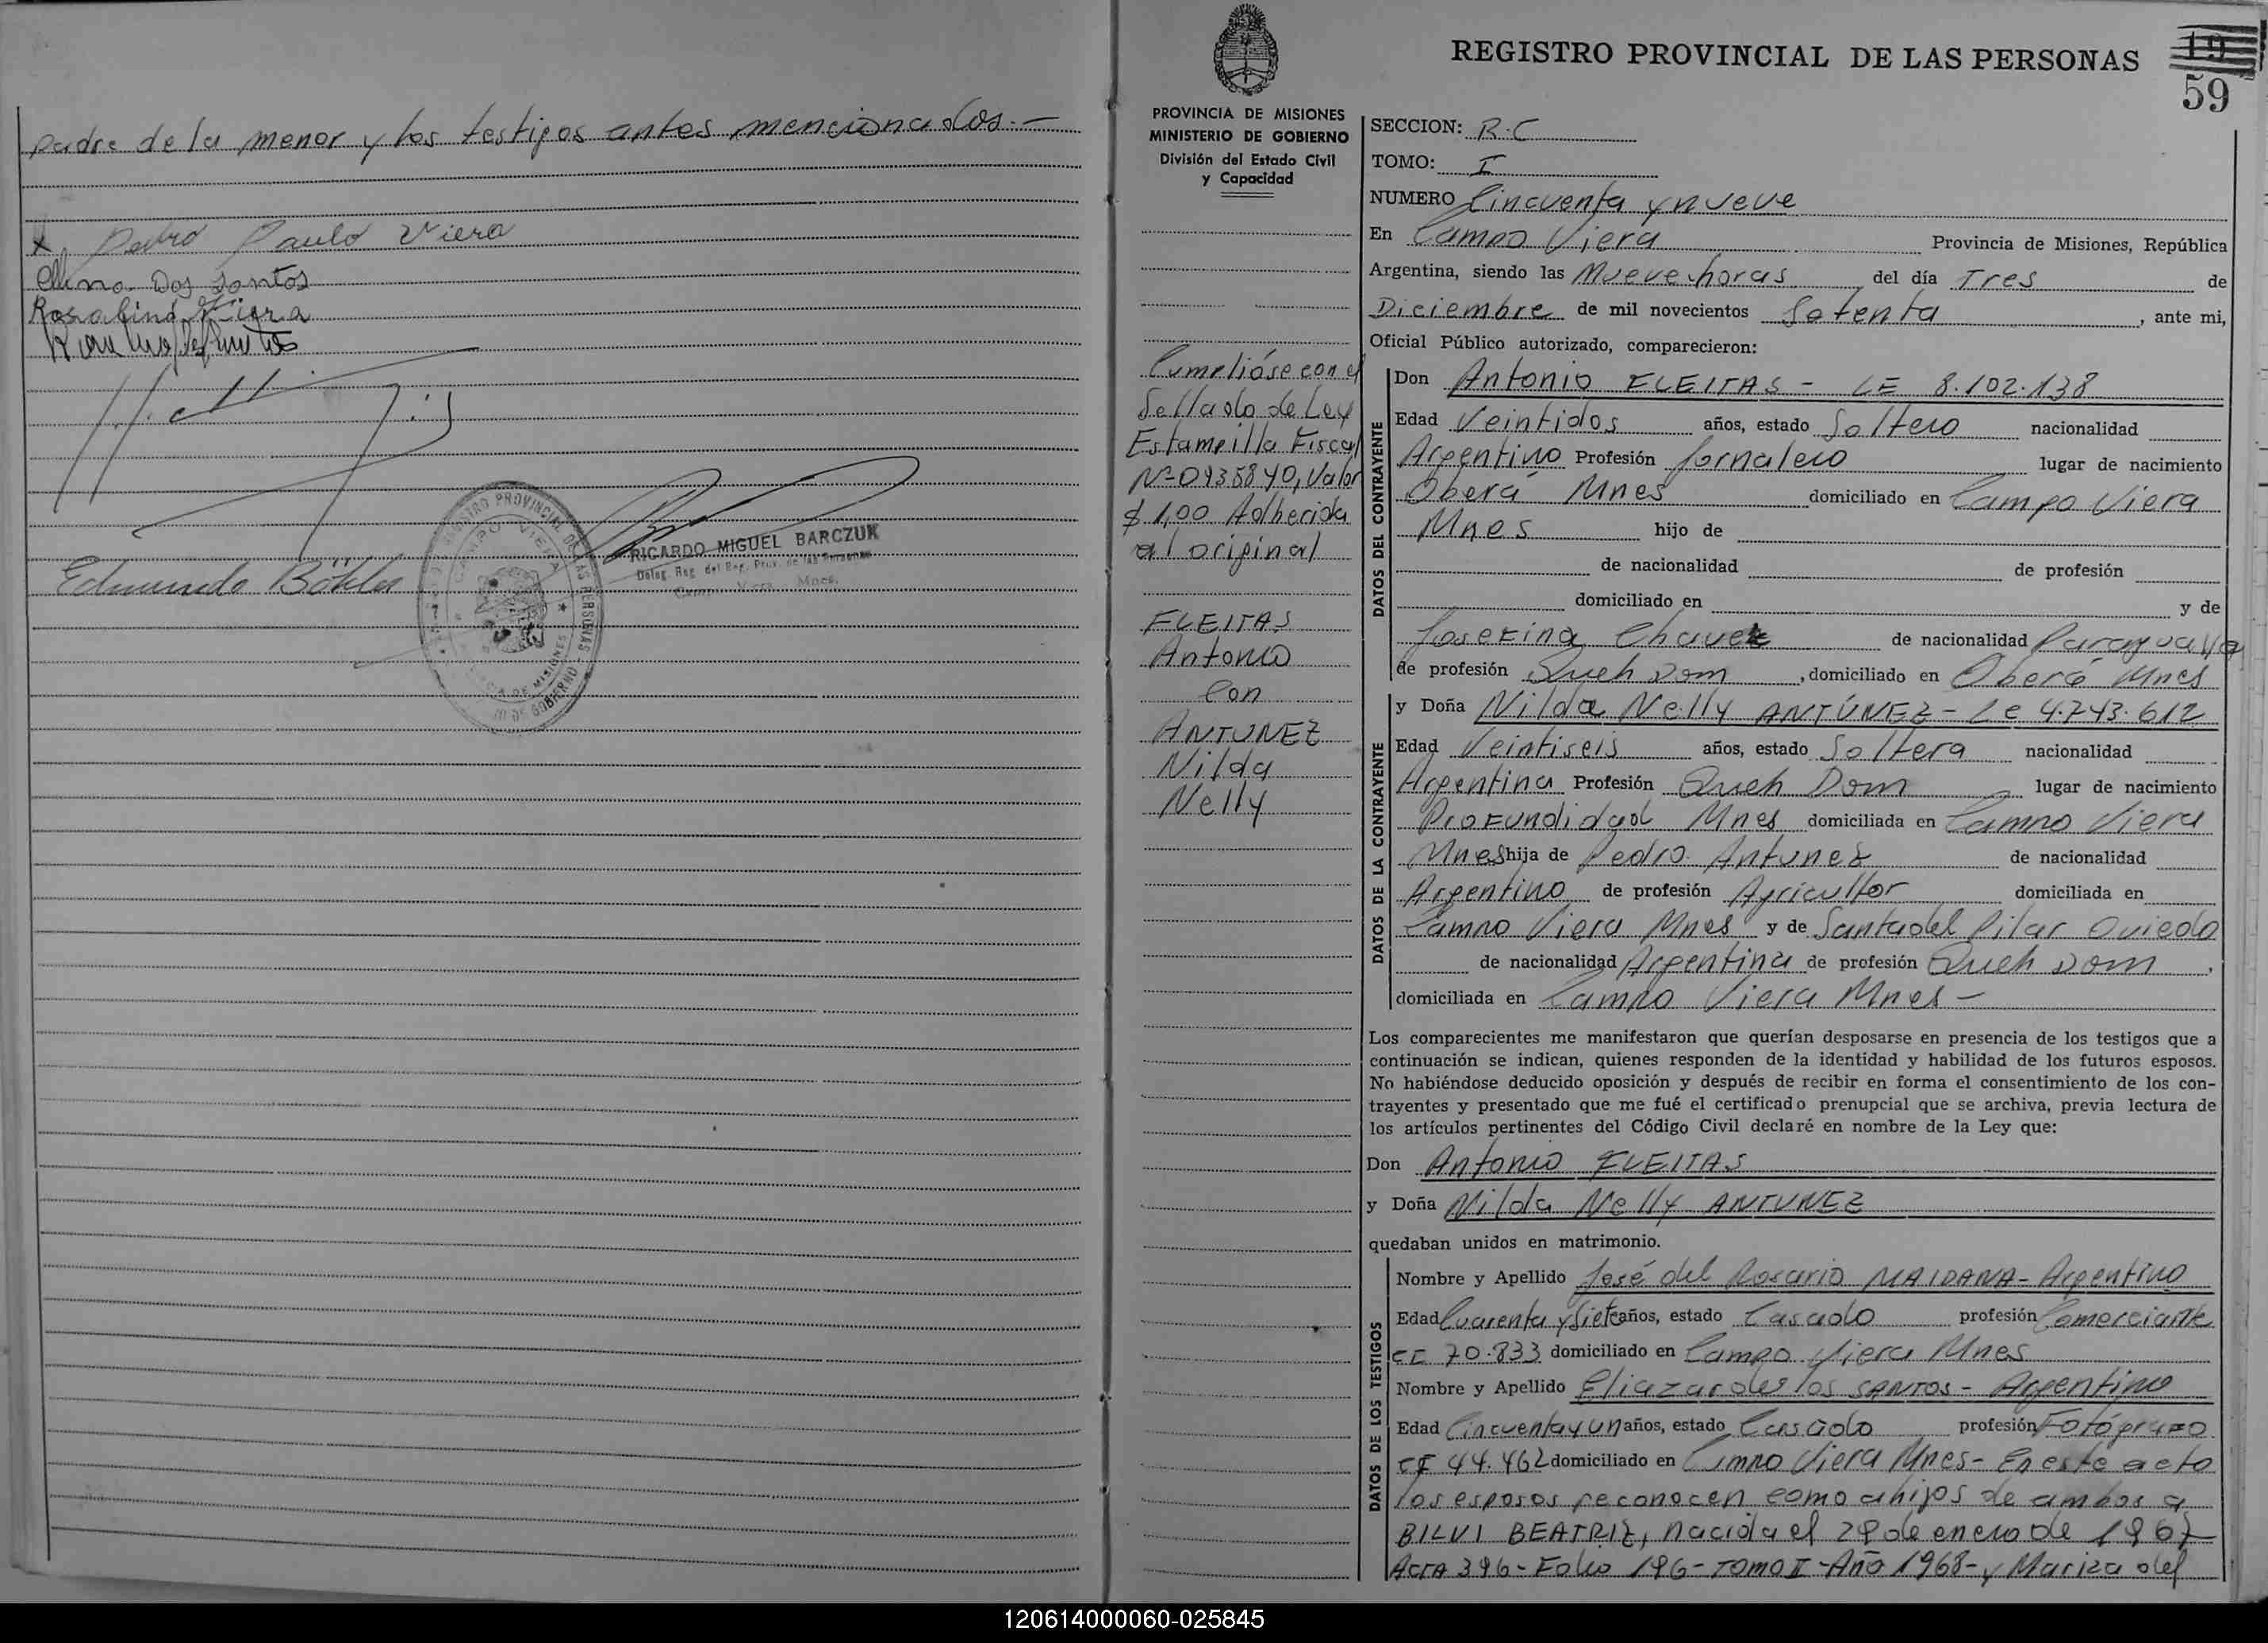 padre de la menor y los testigos antes mencionados.-
x Pedro Paulo Viera
Dos Santos
Rosalino Viera
Edmundo Böhler
REGISTRO PROVINCIAL DE LAS PERSONAS
CAMPO VIERA
RICARDO MIGUEL BARCZUK
Deleg. Reg. del Reg. Prov. de las Personas
Campo Viera Mnes.
REGISTRO PROVINCIAL DE LAS PERSONAS
19
59
PROVINCIA DE MISIONES
MINISTERIO DE GOBIERNO
División del Estado Civil
y Capacidad
Cumplióse con el
Sellado de Ley
Estampilla Fiscal
Nº 0935840, Valor
$ 1,00 Adherida
al original
FLEITAS
Antonio
con
ANTUNEZ
Nilda
Nelly
SECCION: R.C
TOMO: I
NUMERO Cincuenta y nueve
En Campo Viera Provincia de Misiones, República
Argentina, siendo las Nueve horas del día Tres de
Diciembre de mil novecientos Setenta, ante mi,
Oficial Público autorizado, comparecieron:
DATOS DEL CONTRAYENTE
Don Antonio FLEITAS - LE 8.102.138
Edad Veintidos años, estado Soltero nacionalidad
Argentino Profesión Jornalero lugar de nacimiento
Oberá Mnes domiciliado en Campo Viera
Mnes hijo de
de nacionalidad de profesión
domiciliado en y de
Josefina Chavez de nacionalidad Paraguaya
de profesión Queh Dom, domiciliado en Oberá Mnes
DATOS DE LA CONTRAYENTE
y Doña Nilda Nelly ANTÚNEZ - Le 4.743.612
Edad Veintiseis años, estado Soltera nacionalidad
Argentina Profesión Queh Dom lugar de nacimiento
Profundidad Mnes domiciliada en Campo Viera
Mnes hija de Pedro Antunez de nacionalidad
Argentino de profesión Agricultor domiciliada en
Campo Viera Mnes y de Santa del Pilar Oviedo
de nacionalidad Argentina de profesión Queh Dom,
domiciliada en Campo Viera Mnes -
Los comparecientes me manifestaron que querían desposarse en presencia de los testigos que a
continuación se indican, quienes responden de la identidad y habilidad de los futuros esposos.
No habiéndose deducido oposición y después de recibir en forma el consentimiento de los con-
trayentes y presentado que me fué el certificado prenupcial que se archiva, previa lectura de
los artículos pertinentes del Código Civil declaré en nombre de la Ley que:
Don Antonio FLEITAS
y Doña Nilda Nelly ANTUNEZ
quedaban unidos en matrimonio.
DATOS DE LOS TESTIGOS
Nombre y Apellido José del Rosario MAIDANA - Argentino
Edad Cuarenta y Siete años, estado Casado profesión Comerciante
CI 70.833 domiciliado en Campo Viera Mnes
Nombre y Apellido Eliazar de los SANTOS - Argentino
Edad Cincuenta y un años, estado Casado profesión Fotógrafo
CI 44.462 domiciliado en Campo Viera Mnes - En este acto
los esposos reconocen como a hijos de ambos a
BILVI BEATRIZ, nacida el 29 de enero de 1967
Acta 396 - Folio 196 - Tomo II - Año 1968 - y Mariza del
120614000060-025845